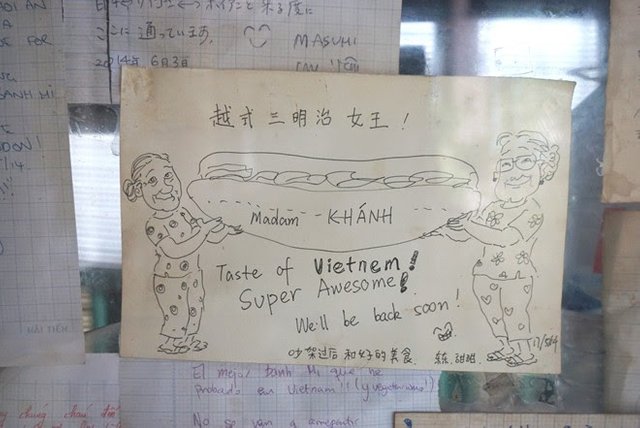 OI AN
A
E FOR
BANH MI
OON!
/14
来る度に
ここに 通っています。
MASUMI
2014年 6月3日
越式 三明治 女王!
Madam KHÁNH
Taste of Vietnem!
Super Awesome!
We'll be back soon!
吵架过后 和好的美食
17/5/14
HẢI TIẾN
El mejor Banh Mi que he
probado en Vietnam!! (y vegetariano!)
No se van a arrepentir
chúng cháu đến